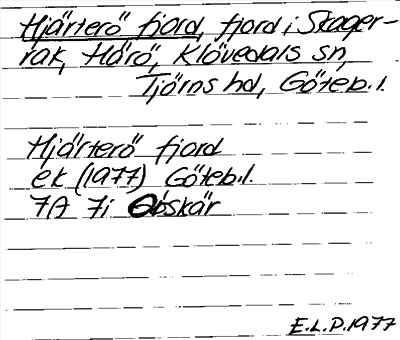 Hjärterö fjord, fjord i Skager-
rak, Härö, Klövedals sn,
Tjörns hd, Göteb.l.
Hjärterö fjord
ek (1977) Göteb.l.
7A 7i Obskär
E.L.P.1977